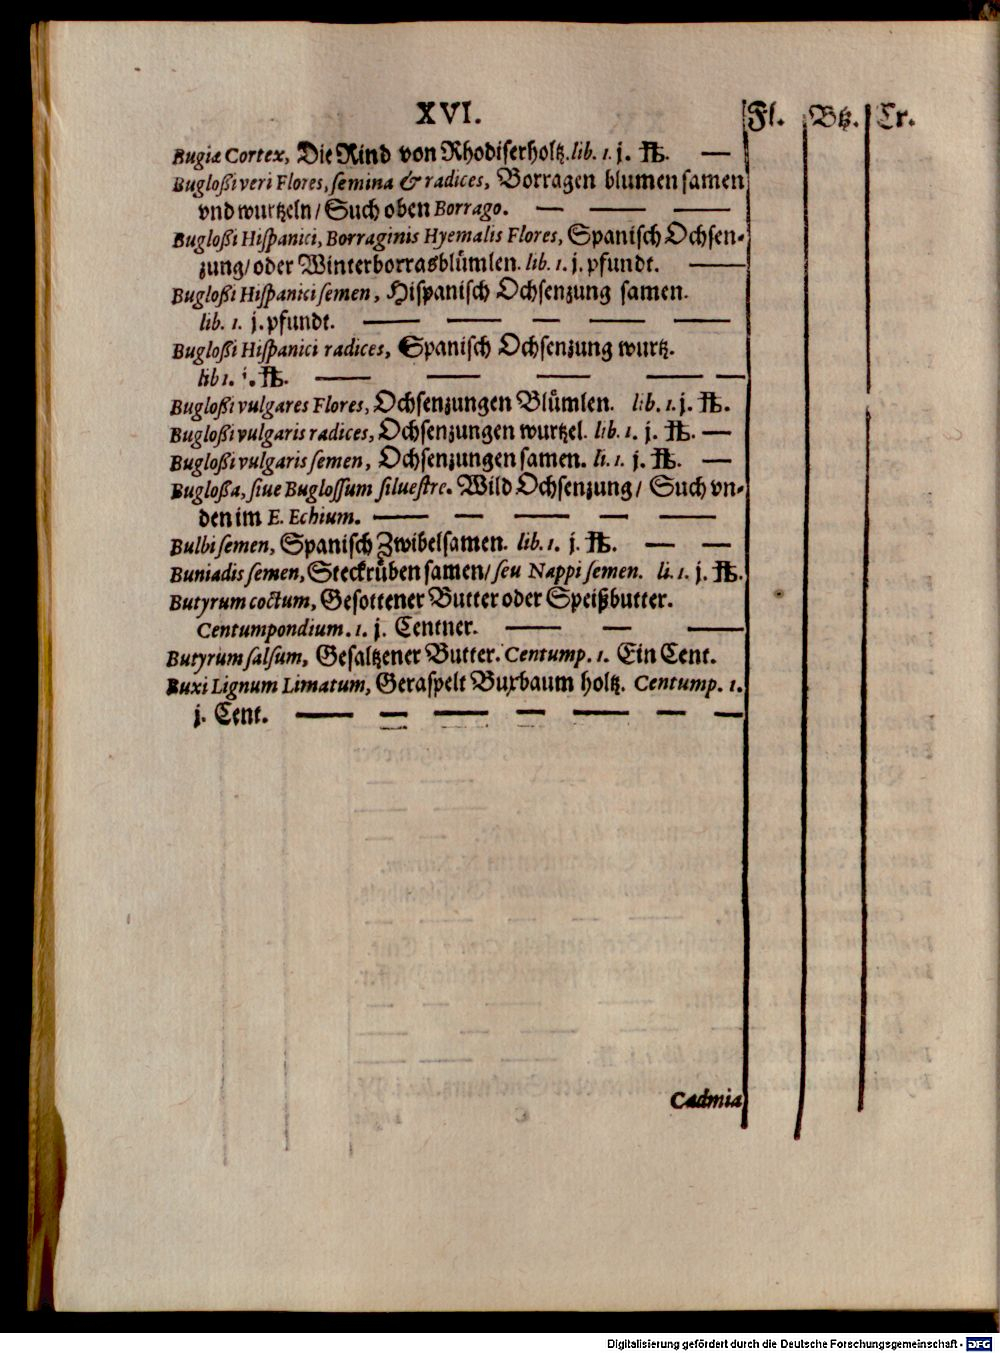 XVI. Fl. Btz. Cr.
Bugiæ Cortex, Die Rind von Rhodiserholtz. lib. 1. j. ℔. —
Bugloßi veri Flores, semina & radices, Borragen blumen samen
vnd wurtzeln/ Such oben Borrago. — — —
Bugloßi Hispanici, Borraginis Hyemalis Flores, Spanisch Ochsen-
zung/ oder Winterborrasblůmlen. lib. 1. j. pfundt. —
Bugloßi Hispanici semen, Hispanisch Ochsenzung samen.
lib. 1. j. pfundt. — — — — —
Bugloßi Hispanici radices, Spanisch Ochsenzung wurtz.
lib 1. j. ℔. — — — — —
Bugloßi vulgares Flores, Ochsenzungen Blůmlen. lib. 1. j. ℔.
Bugloßi vulgaris radices, Ochsenzungen wurtzel. lib. 1. j. ℔. —
Bugloßi vulgaris semen, Ochsenzungen samen. li. 1. j. ℔. —
Bugloßa, siue Buglossum siluestre. Wild Ochsenzung/ Such vn-
den im E. Echium. — — — — —
Bulbi semen, Spanisch Zwibelsamen. lib. 1. j. ℔. — —
Buniadis semen, Steckrůben samen/ seu Nappi semen. li. 1. j. ℔.
Butyrum coctum, Gesottener Butter oder Speißbutter.
Centumpondium. 1. j. Centner. — — —
Butyrum salsum, Gesaltzener Butter. Centump. 1. Ein Cent.
Buxi Lignum Limatum, Geraspelt Buxbaum holtz. Centump. 1.
j. Cent. — — — — — — — —
Cadmia
Digitalisierung gefördert durch die Deutsche Forschungsgemeinschaft - DFG